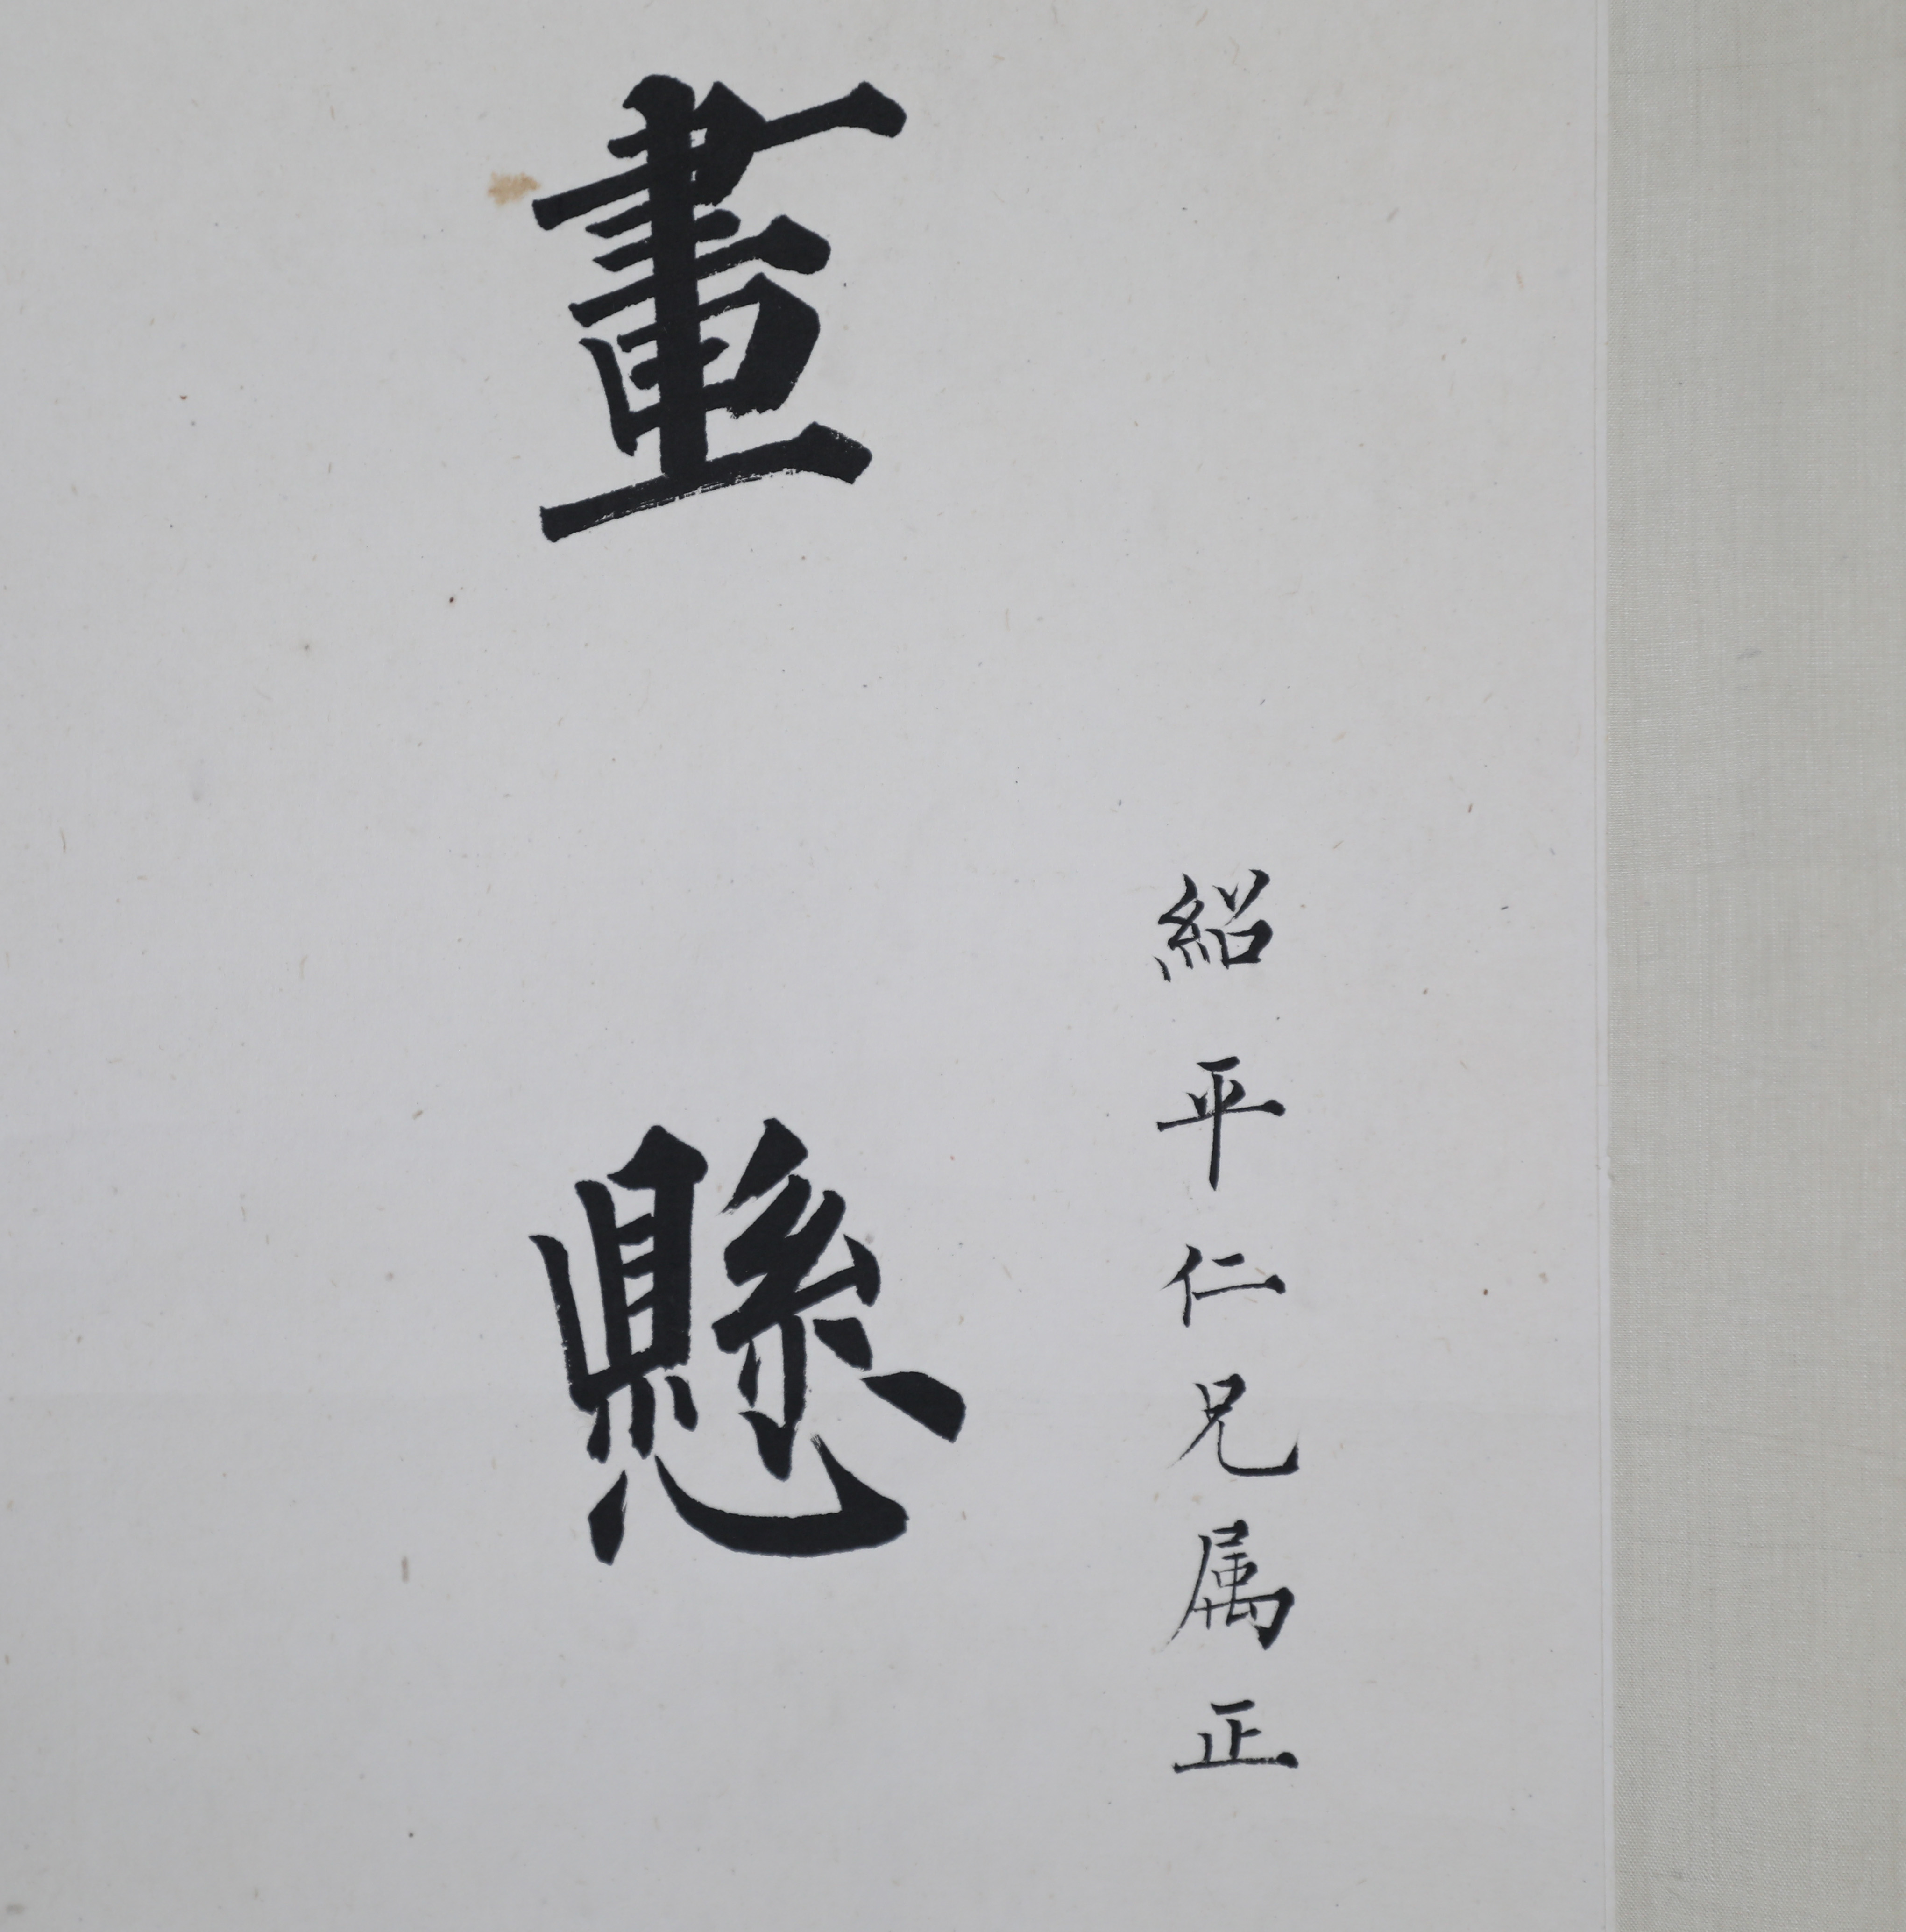 紹平仁兄属正
畫懸